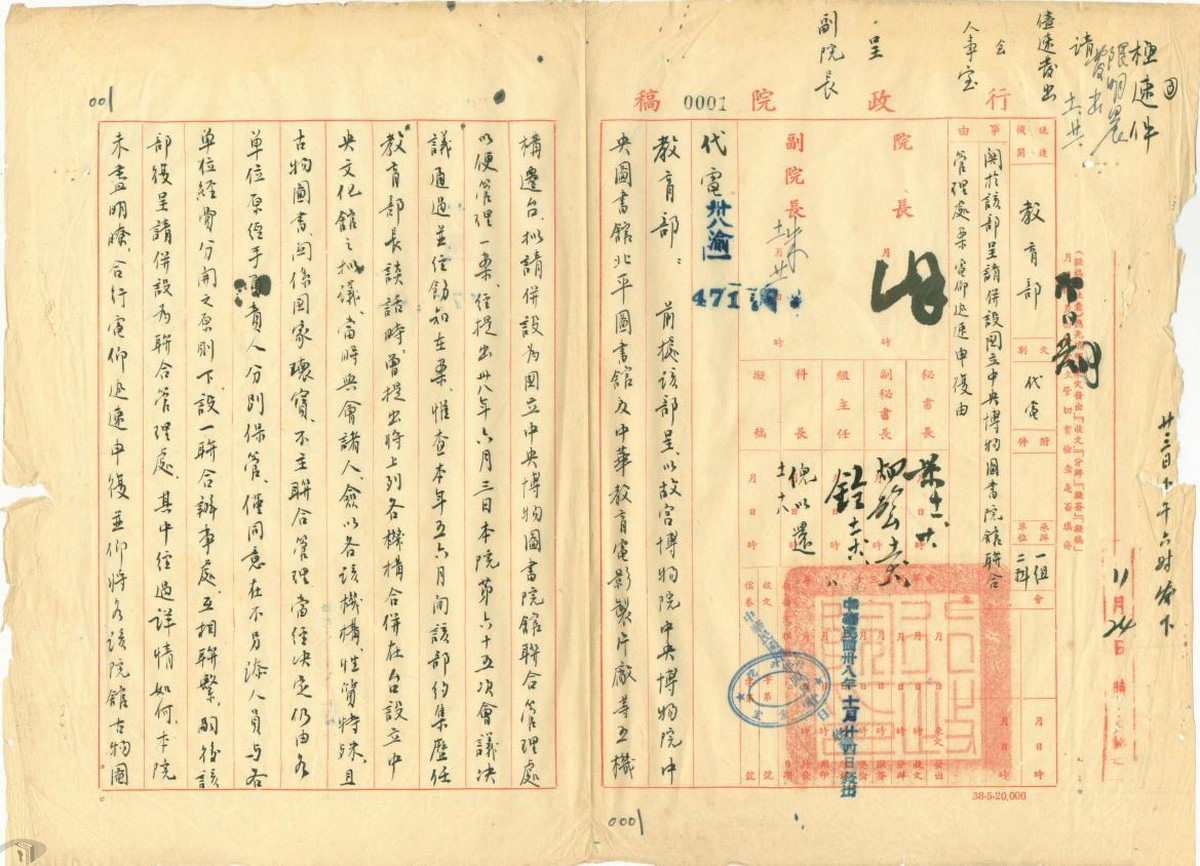 極速件
限明晨
請發出
儘速發出
會
人事室
呈
副院長
行政院 0001 稿
送達機關
教育部
文別
代電
附件
承辦單位
一組二科
會
事由
關於該部呈請併設國立中央博物圖書院館聯合
管理處案電仰迅速申復由
廿三日下午六時發下
11月24日
院長
副院長
秘書長
副秘書長
組主任
科長
擬稿
倪以還
中華民國卅八年十一月廿四日發出
38-5-20,000
代電 卅八渝一
471
教育部：前據該部呈，以故宮博物院中央博物院中
央圖書館北平圖書館及中華教育電影製片廠等五機
0001
構遷台，擬請併設為國立中央博物圖書院館聯合管理處
以便管理一案，經提出卅八年六月三日本院第六十五次會議決
議通過並經飭知在案，惟查本年五六月間該部約集歷任
教育部長談話時，曾提出將上列各機構合併在台設立中
央文化館之擬議，當時與會諸人，僉以各該機構，性質特殊，且
古物圖書，關係國家瓌寶，不主聯合管理當經決定仍由各
單位原經手負責人分別保管，僅同意在不另添人員與各
單位經費分開之原則下，設一聯合辦事處，互相聯繫，嗣後該
部復呈請併設為聯合管理處，其中經過詳情如何，本院
未盡明瞭，合行電仰迅速申復並仰將各該院館古物圖
001